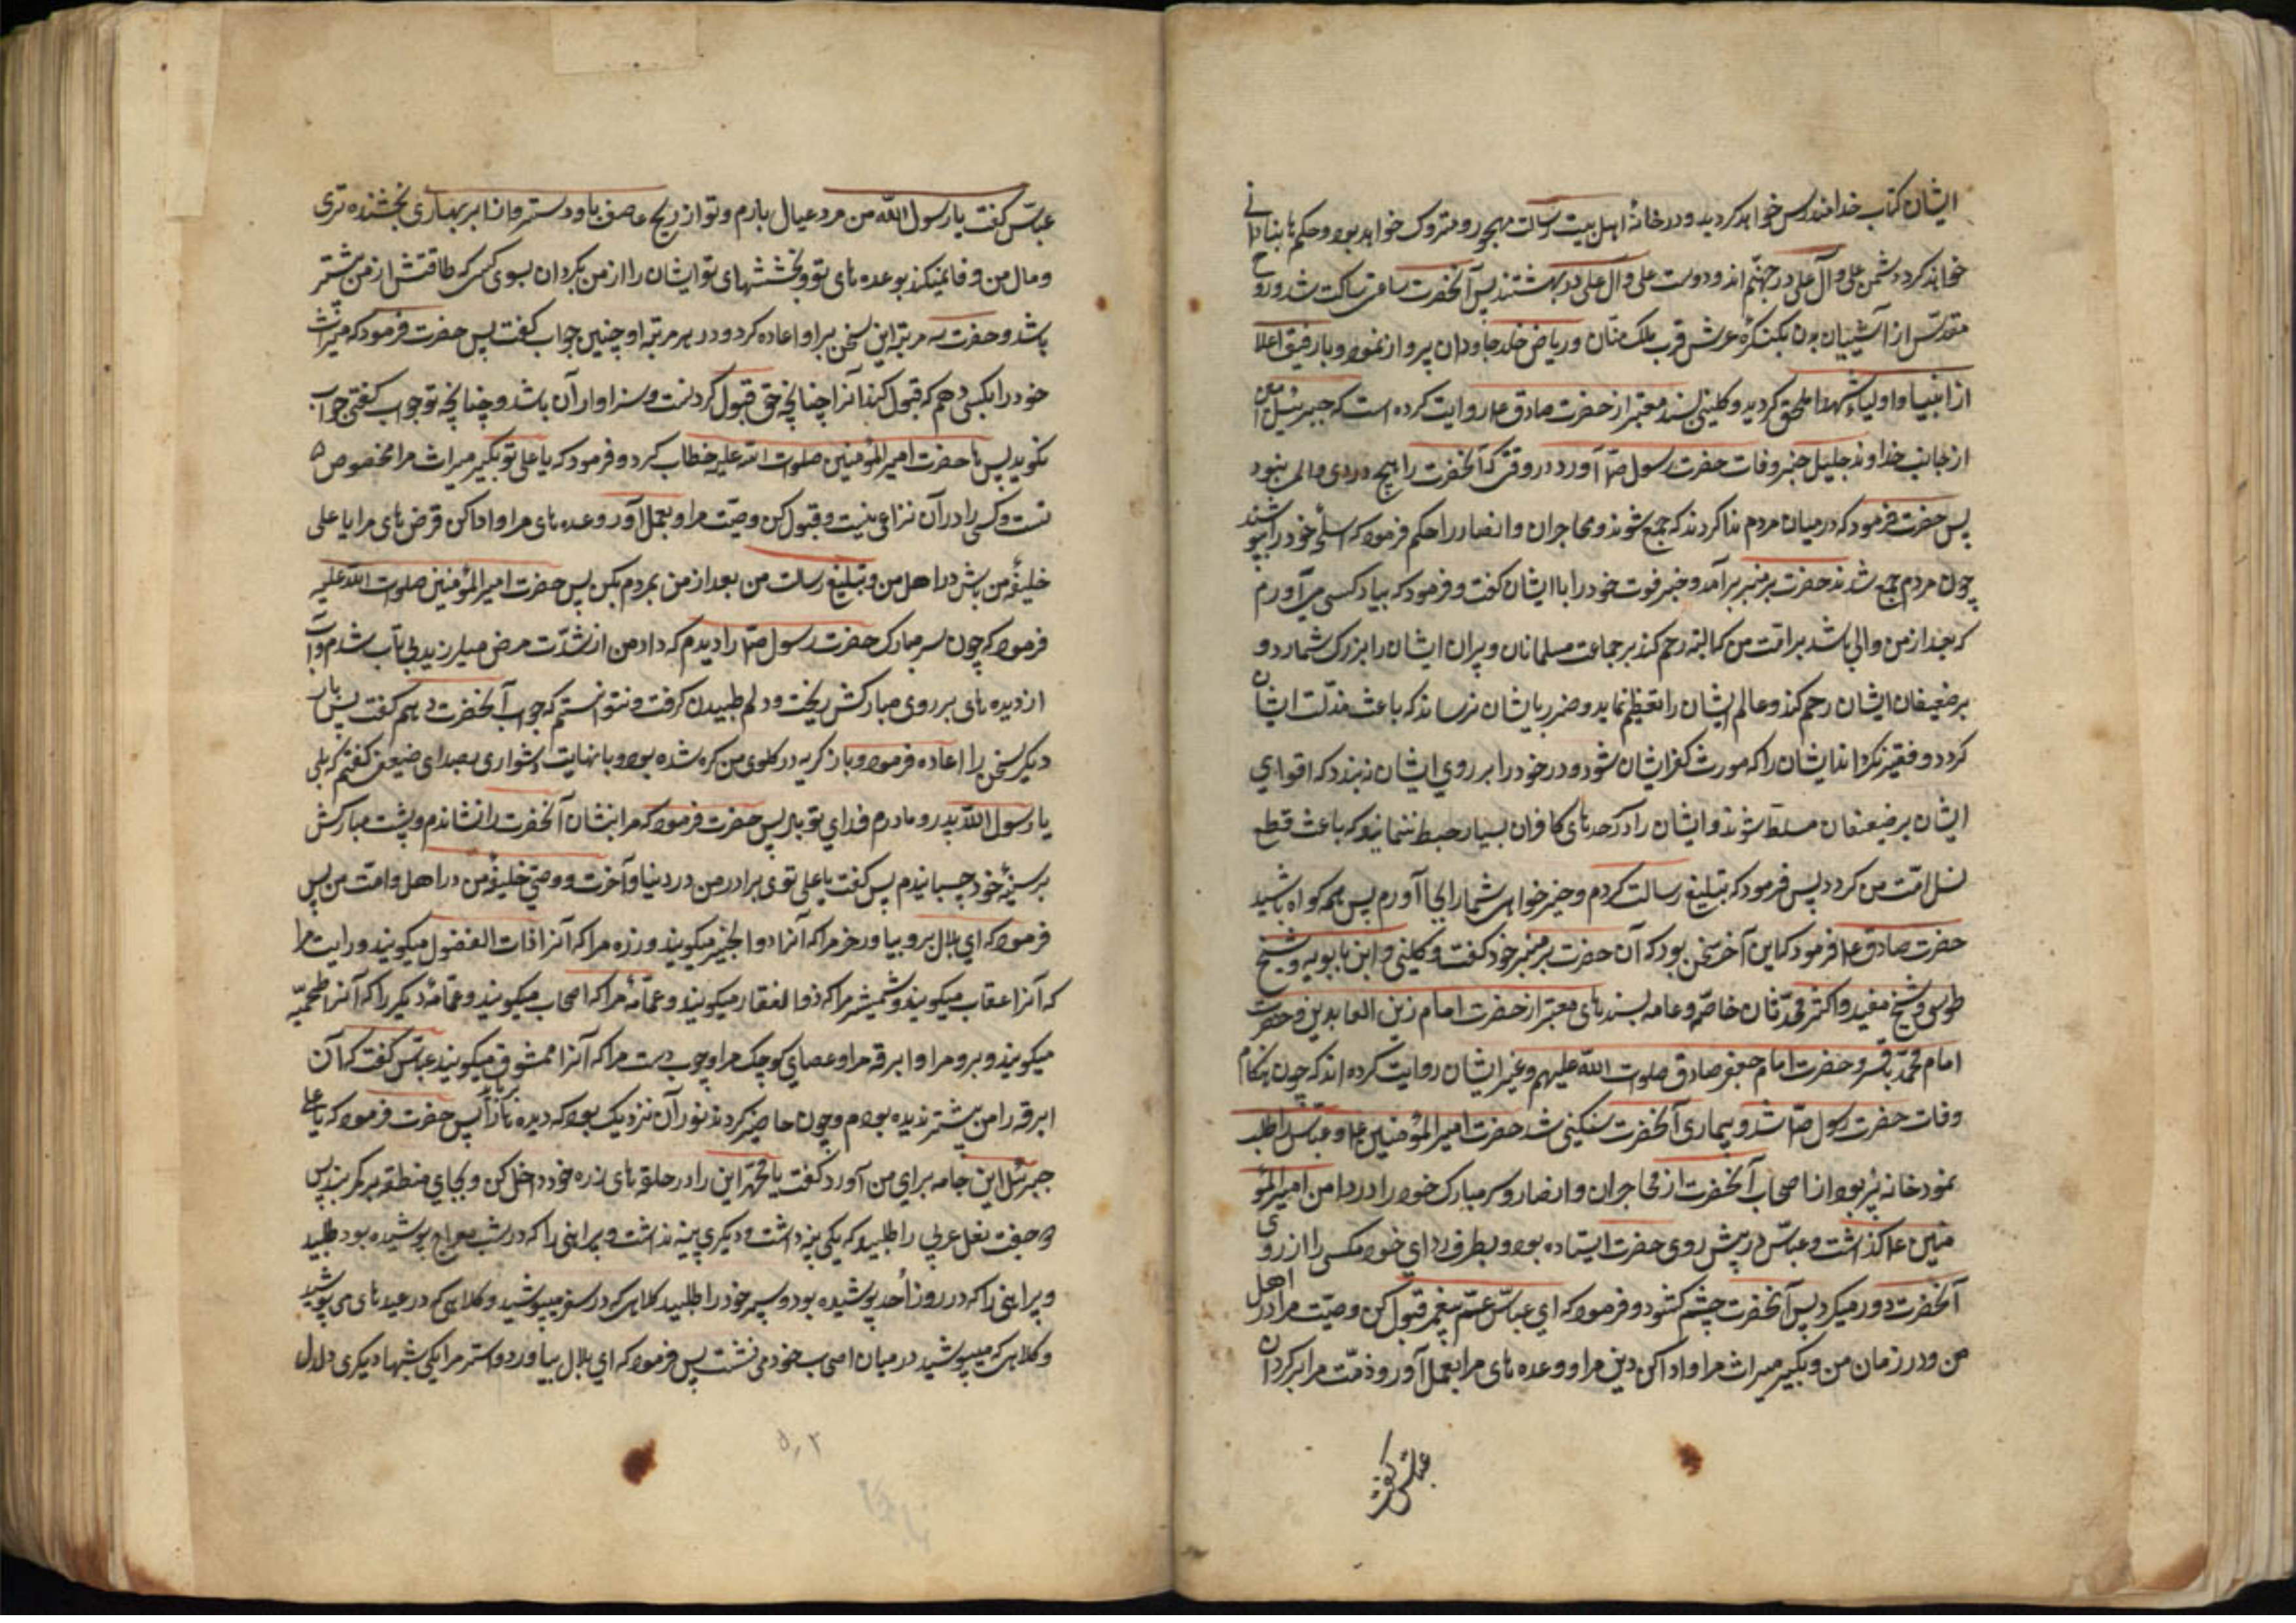 ایشان کتاب خدا مندرس خواهد کردید و در خانهٔ اهل بیت رسالت مهجور و متروک خواهد بود و حکم بنادانی
خواند کرد دشمن علی و آل علی در جهنّم اند و دوست علی و آل علی در بهشتند پس آنحضرت ساعتی ساکت شد و روح
مقدّسش از آشیان بدن بکنکرهٔ عرش قرب ملک منّان و ریاض خلد جاودان پرواز نمود و با رفیق اعلا
از انبیا و اولیا و شهدا ملحق کردید و کلینی بسند معتبر از حضرت صادق ع روایت کرده است که جبرئیل امین
از جانب خداوند جلیل خبر وفات حضرت رسول ص آورد در وقتی که آنحضرت را هیچ دردی و المی نبود
پس حضرت فرمود که در میان مردم ندا کردند که جمع شوند و مهاجران و انصار را حکم فرمود که اسلحهٔ خود را بپوشند
چون مردم جمع شدند حضرت بر منبر برآمد و خبر فوت خود را با ایشان کفت و فرمود که بیاد کسی می آورم
که بعد از من والی باشد بر امّت من که البته رحم کند بر جماعت مسلمانان و پیران ایشان را بزرک شمارد و
بر ضعیفان ایشان رحم کند و عالم ایشان را تعظیم نماید و ضرر بایشان نرساند که باعث مذلّت ایشان
کردد و فقیر نکرداند ایشان را که مورث کفر ایشان شود و در خود را بر روی ایشان نبندد که اقویای
ایشان بر ضعیفان مسلط شوند و ایشان را در سرحدهای کافران بسیار حبط ننماید که باعث قطع
نسل امّت من کردد پس فرمود که تبلیغ رسالت کردم و خیرخواهی شما را بجا آوردم پس همه کواه باشید
حضرت صادق ع فرمود که این آخر سخن بود که آن حضرت بر منبر خود کفت و کلینی و ابن بابویه و شیخ
طوسی و شیخ مفید و اکثر محدّثان خاصّه و عامه بسندهای معتبر از حضرت امام زین العابدین و حضرت
امام محمّد باقر و حضرت امام جعفر صادق صلوات الله علیهم و غیر ایشان روایت کرده اند که چون هنکام
وفات حضرت رسول ص شد و بیماری آنحضرت سنکین شد حضرت امیر المؤمنین ع و عباس را طلب
نمود خانه پر بود از اصحاب آنحضرت از مهاجران و انصار و سر مبارک خود را در دامن امیر المؤ
منین ع کذاشت و عباس در پیش روی حضرت ایستاده بود و بطرف ردای خود مکس را از روی
آنحضرت دور میکرد پس آنحضرت چشم کشود و فرمود که ای عباس عمّ پیغمبر قبول کن وصیّت مرا در اهل
من و در زمان من و بکیر میراث مرا و ادا کن دین مرا و وعده های مرا بعمل آور و ذمّت مرا بر کردان
عباس کفت
عباس کفت یا رسول الله من مرد عیال بارم و تو از ریح عاصف باد و دستر و از ابر بهاری بخشنده تری
و مال من وفا نمیکند بوعده های تو و بخششهای تو ایشان را از من بکردان بسوی کسی که طاقتش از من بیشتر
باشد و حضرت سه مرتبه این سخن بر او اعاده کرد و در هر مرتبه او چنین جواب کفت پس حضرت فرمود که میراث
خود را بکسی دهم که قبول کند آنرا چنانچه حق قبول کردنست و سزاوار آن باشد و چنانچه تو جواب کفتی جواب
نکوید پس با حضرت امیر المؤمنین صلوات الله علیه خطاب کرد و فرمود که یا علی تو بکیر میراث مرا مخصوص
تست و کسی را در آن نزاعی نیست و قبول کن وصیّت مرا و بعمل آور وعده های مرا و ادا کن قرض های مرا یا علی
خلیفهٔ من باش در اهل من و تبلیغ رسالت من بعد از من بمردم بکن پس حضرت امیر المؤمنین صلوات الله علیه
فرمود که چون سر مبارک حضرت رسول ص را دیدم که در دامن از شدّت مرض میلرزید بی تاب شدم و آب
از دیده های بر روی مبارکش ریخت و دلم طپیدن کرفت و نتوانستم که جواب آنحضرت دهم کفت پس بار
دیکر سخن را اعاده فرمود و باز کریه در کلوی من کره شده بود و با نهایت دشواری بصدای ضعیف کفتم که بلی
یا رسول الله پدر و مادرم فدای تو باد پس حضرت فرمود که مرا بنشان آنحضرت را نشاندم و پشت مبارکش
بر سینهٔ خود چسبانیدم پس کفت یا علی توی برادر من در دنیا و آخرت و وصی خلیفهٔ من در اهل و امّت من پس
فرمود که ای بلال برو بیاور خر مرا که آنرا ذوالجبین میکویند و زره مرا که آنرا ذات الفضول میکویند و رایت مرا
که آنرا عقاب میکویند و شمشیر مرا که ذوالفقار میکویند و عمّامهٔ مرا که اصحاب میکویند و عمّامهٔ دیکر را که آنرا طحمیّه
میکویند و برد مرا و ابرقه مرا و عصای کوچک مرا و چوب دست مرا که آنرا ممشوق میکویند عباس کفت که آن
ابرقه را من پیشتر ندیده بودم و چون حاضر کردند نور آن نزدیک بود که دیده ها را برباید پس حضرت فرمود که یا علی
جبرئیل این جامه برای من آورد و کفت یا محمّد این را در حلقه های زره خود داخل کن و بجای منطقه بر کمر بند پس
دو جفت نعل عربی را طلبید که یکی پینه داشت و دیکری پینه نداشت و پیراهنی را که در شب معراج پوشیده بود طلبید
و پیراهنی را که در روز اُحد پوشیده بود و سه خود را طلبید کلاهی که در سفر میپوشید و کلاهی که در عیدهای می پوشید
و کلاهی که میپوشید در میان اصحاب خود می نشست پس فرمود که ای بلال بیاور دو استر مرا یکی شهبا و دیکری دلدل